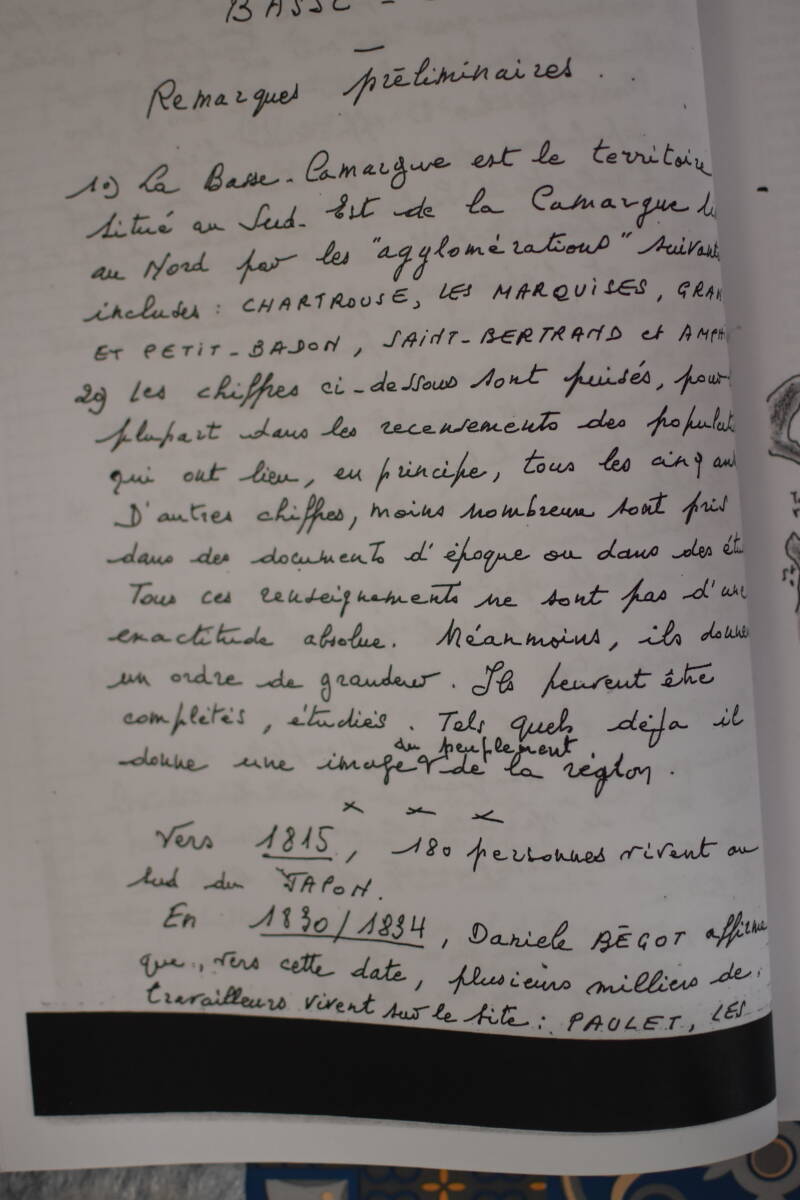 BASSE -
Remarques préliminaires.
1°) La Basse-Camargue est le territoire
situé au Sud-Est de la Camargue
au Nord par les "agglomérations" suivant
incluses : CHARTROUSE, LES MARQUISES, GRAN
ET PETIT-BADON, SAINT-BERTRAND et AMPH
2°) Les chiffres ci-dessous sont puisés, pour
plupart dans les recensements des populat
qui ont lieu, en principe, tous les cinq an
D'autres chiffres, moins nombreux sont pris
dans des documents d'époque ou dans des étu
Tous ces renseignements ne sont pas d'une
exactitude absolue. Néanmoins, ils donne
un ordre de grandeur. Ils peuvent être
complétés, étudiés. Tels quels déjà il
donne une image du peuplement de la région.
x x x
Vers 1815, 180 personnes vivent au
Sud du JAPON.
En 1830/1834, Daniele BÉGOT affirme
que, vers cette date, plusieurs milliers de
travailleurs vivent sur le site : PAULET, LES